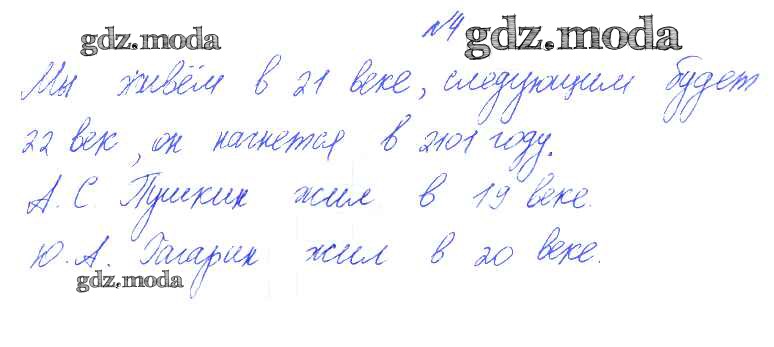 №4
gdz.moda gdz.moda
Мы живём в 21 веке, следующим будет
22 век, он начнется в 2101 году.
А. С Пушкин жил в 19 веке.
Ю. А. Гагарин жил в 20 веке.
gdz.moda